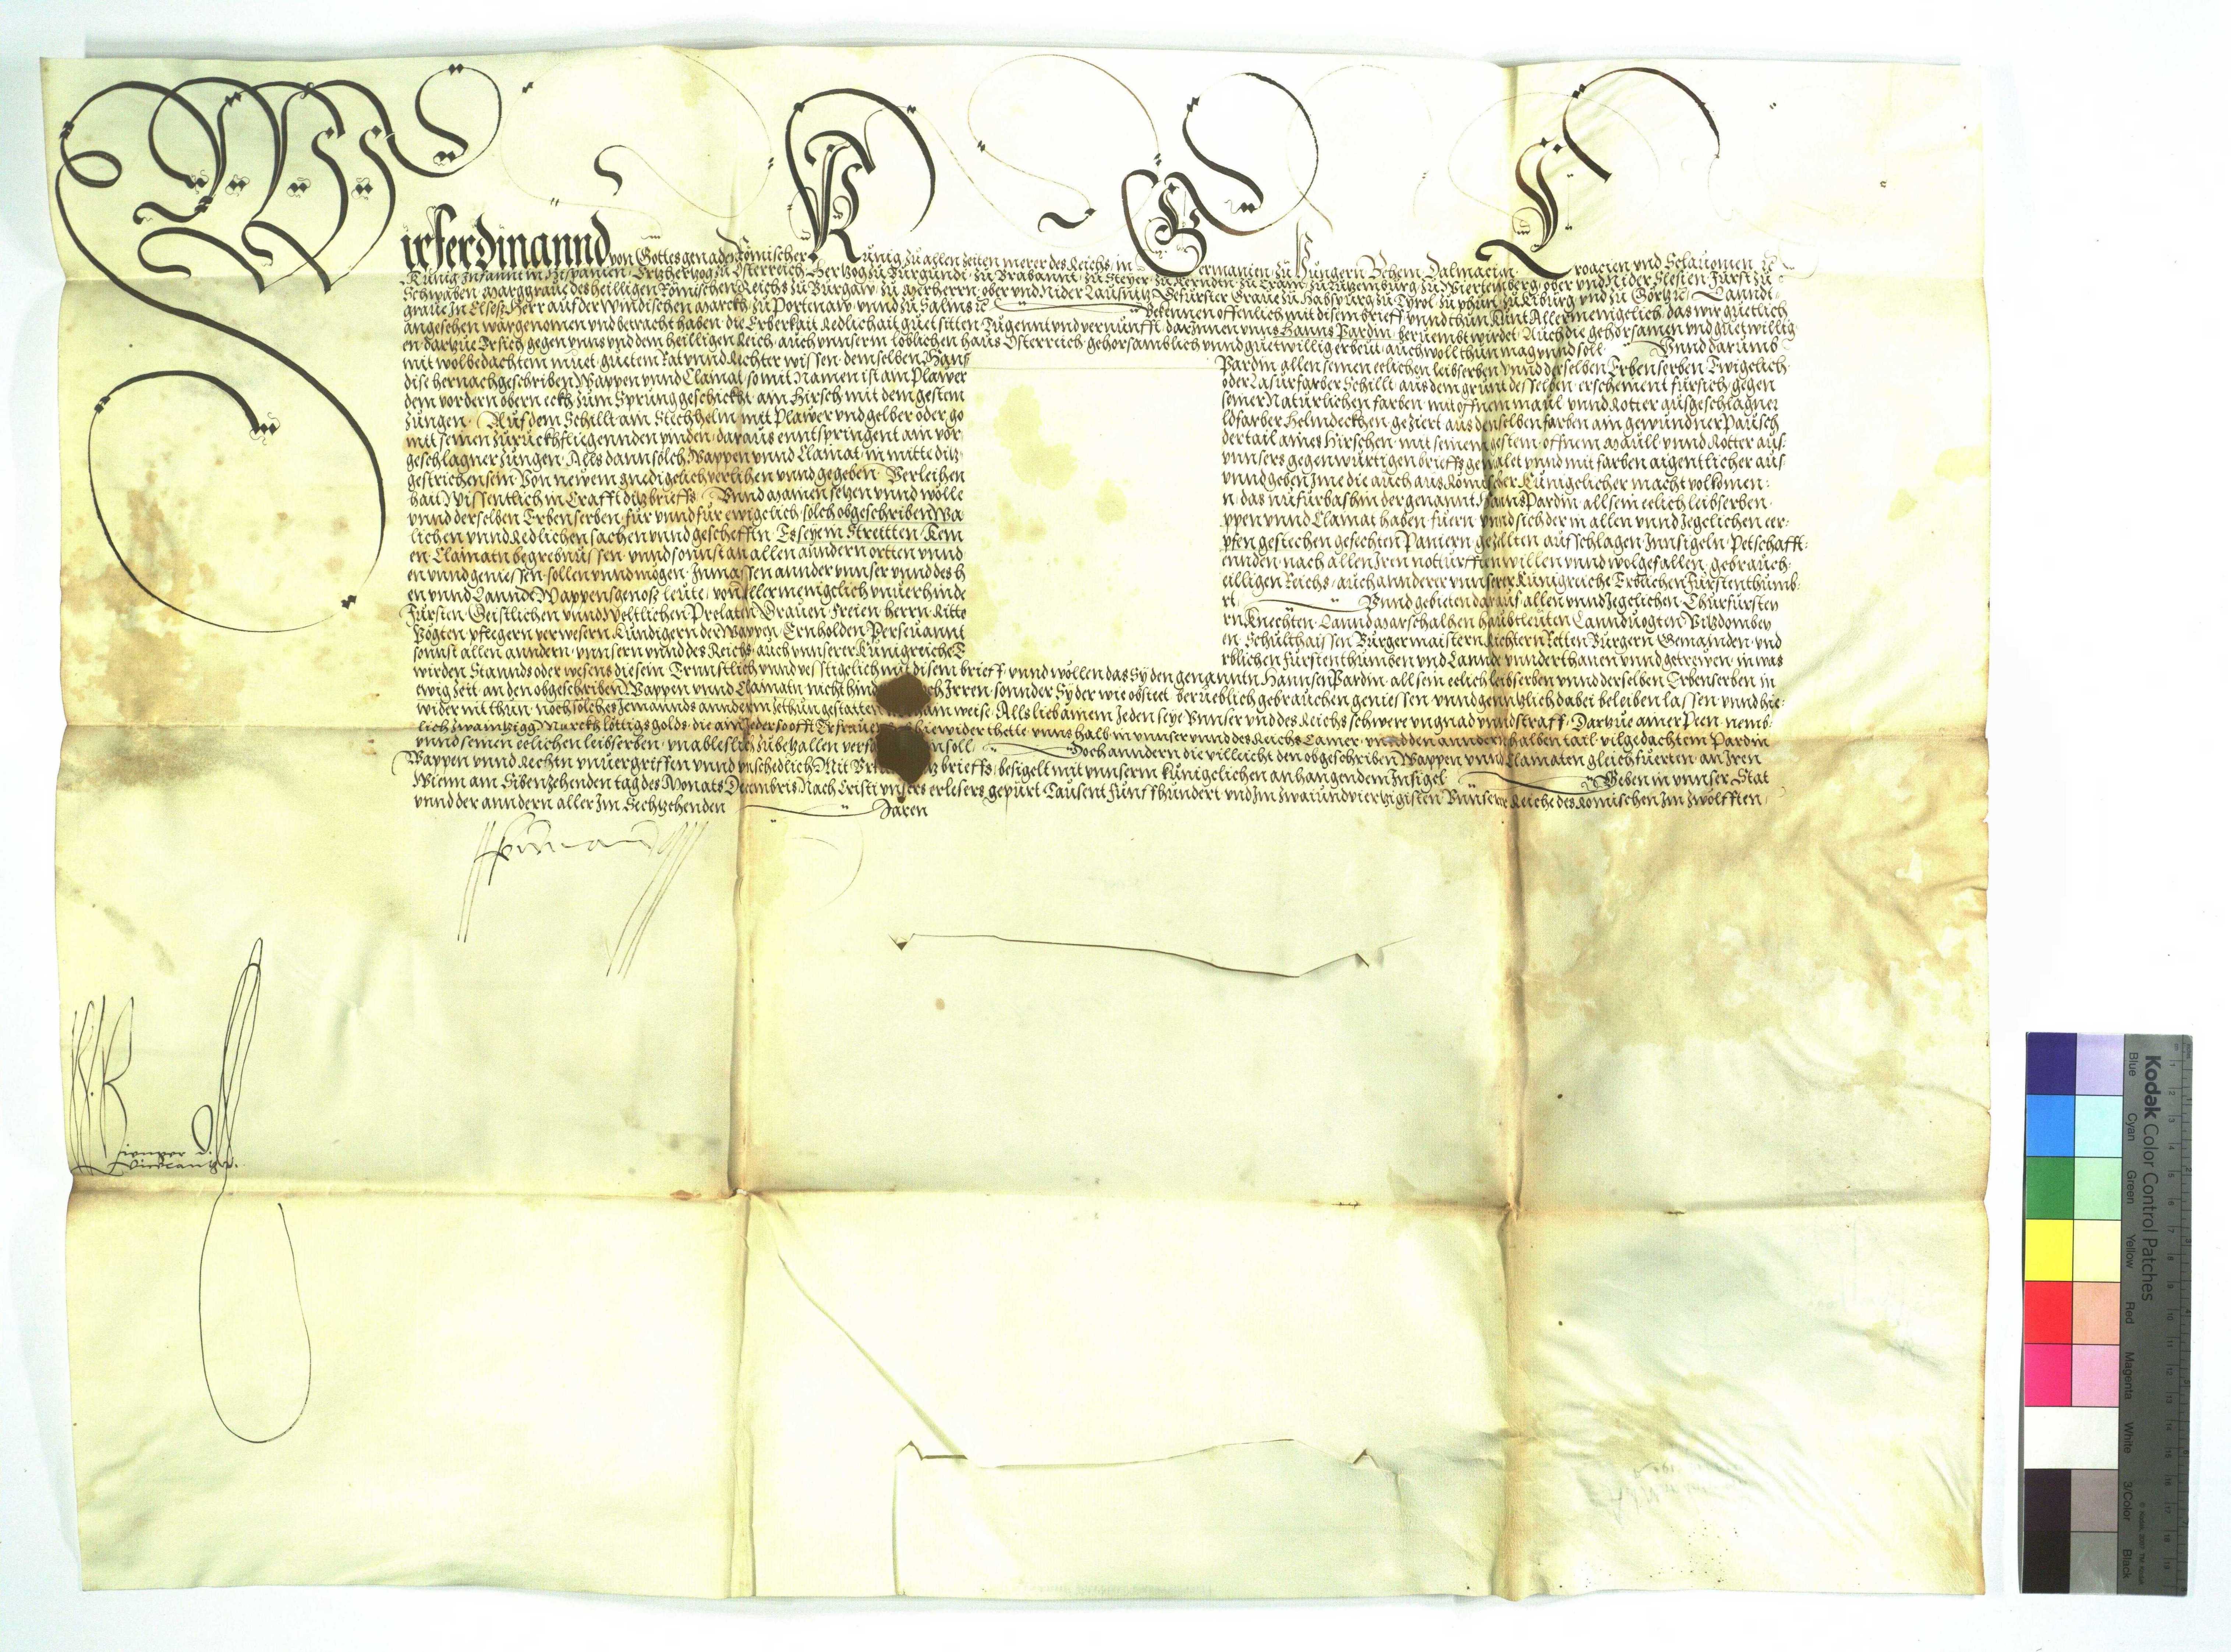 Wir Ferdinannd von Gottes genaden Römischer Künig zu allen zeiten merer des Reichs, in Germanien, zu Hungern, Behem, Dalmacien, Croacien vnd Sclauonien ꝛc
Künig Infannt in Hispanien, Ertzhertzog zu Österreich, Hertzog zu Burgundi, zu Brabannt, zu Steyer, zu Kerndten, zu Crain, zu Lutzemburg, zu Wiertemberg, ober vnd Nider Slesien, Fürst zu
Schwaben, Marggraue des heilligen Römischen Reichs zu Burgaw, zu Merherrn, ober vnd Nider Lausnitz, Gefürster Graue zu Habspurg, zu Tyrol, zu Phirt, zu Kiburg, vnd zu Görtz ꝛc Lanndt-
graue in Elsess, Herr auf der Windischen Marckh, zu Portenaw, vnnd zu Salins ꝛc Bekennen offenlich mit disem brieff, vnnd thun kunt Allermenigclich, das wir guetlich
angesehen wargenomen vnd betracht haben, die Erberkait Redlichait guet sitten Tugennt vnd vernunfft, darInnen vnns Hanns Pardin, beruembt wirdet, Auch die gehorsamen vnd guetwillig
en, dartzue Er sich, gegen vnns vnd dem heilligen Reich, auch vnnserm löblichen haus Österreich, gehorsamblich vnnd guetwillig erbeut, auch woll thun mag vnnd soll. Vnnd darumb
mit wolbedachtem muet, guetem Rat vnnd Rechter wissen, demselben Hans Pardin allen seinen eelichen leibserben vnnd derselben Erbenserben Ewigclich,
dise hernachgeschriben Wappen vnnd Clainat, so mit Namen ist ain Plawer oder Lasurfarber Schillt, aus dem grunt desselben, erscheinent fürsich, gegen
dem vordern obern eckh zum Sprung geschickht, ain Hirsch, mit dem gestem seiner Natürlichen farben, mit offnem maul vnnd Rotter ausgeschlagner
zungen, Auf dem Schillt ain Stechhelm mit Plawer vnd gelber oder go ldfarber Helmdeckhen geziert, aus denselben farben ain gewundner Pausch
mit seinen zuruckhfliegennden pinden, daraus enntspringent ain vor dertail aines Hirschen, mit seinem gestem, offnem Maull vnnd Rotter aus-
geschlagner zungen, Alls dann solch Wappen vnnd Clainat, in mitte ditz vnnsers gegenwurtigen brieffs gemalet vnnd mit farben aigentlicher aus-
gestrichen sein, Von newem gnedigclich verlihen vnnd gegeben, Verleihen vnnd geben Ime die auch aus Römischer Künigclicher macht volkomen-
hait Wissentlich in Crafft ditz brieffs, Vnnd Mainen setzen vnnd wölle n, das nu fürbashin der genannt Hanns Pardin, all sein eelich leibserben,
vnnd derselben Erbenserben, für vnnd für ewigclich, solch obgeschriben Wa ppen vnnd Clainat haben, fuern, vnnd sich der in allen vnnd Jegclichen eer-
lichen vnnd Redlichen sachen vnnd gescheffin, Es seyein Streitten, Kem pfen, gestechen, gefechten, Paniern, gezellten aufschlagen, Innsigeln, Petschafft-
en, Clainatn, begrebnussen, vnnd sonnst an allen anndern ortten vnnd ennden, nach allen Iren notturfften willen vnnd wolgefallen, gebrauch-
en vnnd geniessen, sollen vnnd mögen, Inmassen annder vnnser vnnd des h eilligen Reichs, auch annderer vnnserer Künigreiche Erblichen Fürstenthumb-
en vnnd Lannde, Wappensgenoss leute, von allermenigclich vnuerhinde rt, Vnnd gebieten darauf, allen vnnd Jegclichen, Churfürsten
Fürsten, Geistlichen vnnd Weltlichen, Prelaten, Grauen, Freien, herrn, Ritte rn, Knechten, Lanndmarschalhen, haubtleuten, Lanndtuogten, Vitzdomben
Vögten, Pflegern, verwesern, Kundigern der Wappen, Ernholden, Perseuannt en, Schulthaissen, Burgermaistern, Richtern, Retten, Burgern, Gemainden, vnd
sonnst allen anndern, vnnsern vnnd des Reichs, auch vnnserer Künigreiche E rblichen Fürstenthumben vnd Lannde, vnnderthanen vnnd getrewen, in was
wirden Stannds oder wesens die sein, Ernnstlich vnnd vesstigclich mit disem brieff, vnnd wöllen das Sy den genannten Hannsen Pardin, all sein eelich leibserben vnnd derselben Erbenserben in
ewig zeit, an den obgeschriben Wappen vnnd Clainatn nicht hindern noch Irren, sonnder Sy der wie obsteet, berueblich gebrauchen, geniessen, vnnd genntzlich dabei beleiben lassen, vnnd hie-
wider nit thun, noch solches Jemannds anndern zethun gestatten in kain weise, Alls lieb ainem Jeden seye, Vnnser vnd des Reichs schwere vngnad vnnd straff, Dartzue ainer Peen, nemb-
lich zwaintzigg Marckh löttigs golds, die ain Jeder so offt Er freuenlich hiewider thette, vnns halb in vnnser vnnd des Reichs Camer, vnnd den anndern halben tail, vilgedachtem Pardin
vnnd seinen eelichen leibserben, vnableslich zubetzallen verfallen sein soll, Doch anndern die villeicht den obgeschriben Wappen vnnd Clainaten gleich fuerten, an Iren
Wappen vnnd Rechtn vnuergriffen vnnd vnschedlich, Mit Vrkund ditz brieffs, besigelt mit vnnserm künigclichen anhangendem Insigel Geben in vnnser Stat
Wienn am Sibenzehenden tag des Monats Decembris Nach Cristi vnsers erlesers gepurt Tausent Funffhundert vnd Im zwaiundviertzigisten, Vnnserer Reiche des Romischen Im zwölfften,
vnnd der anndern aller Im Sechtzehenden Jaren
Ferdinand
Kodak Color Control Patches
Blue Cyan Green Yellow Red Magenta White 3/Color Black